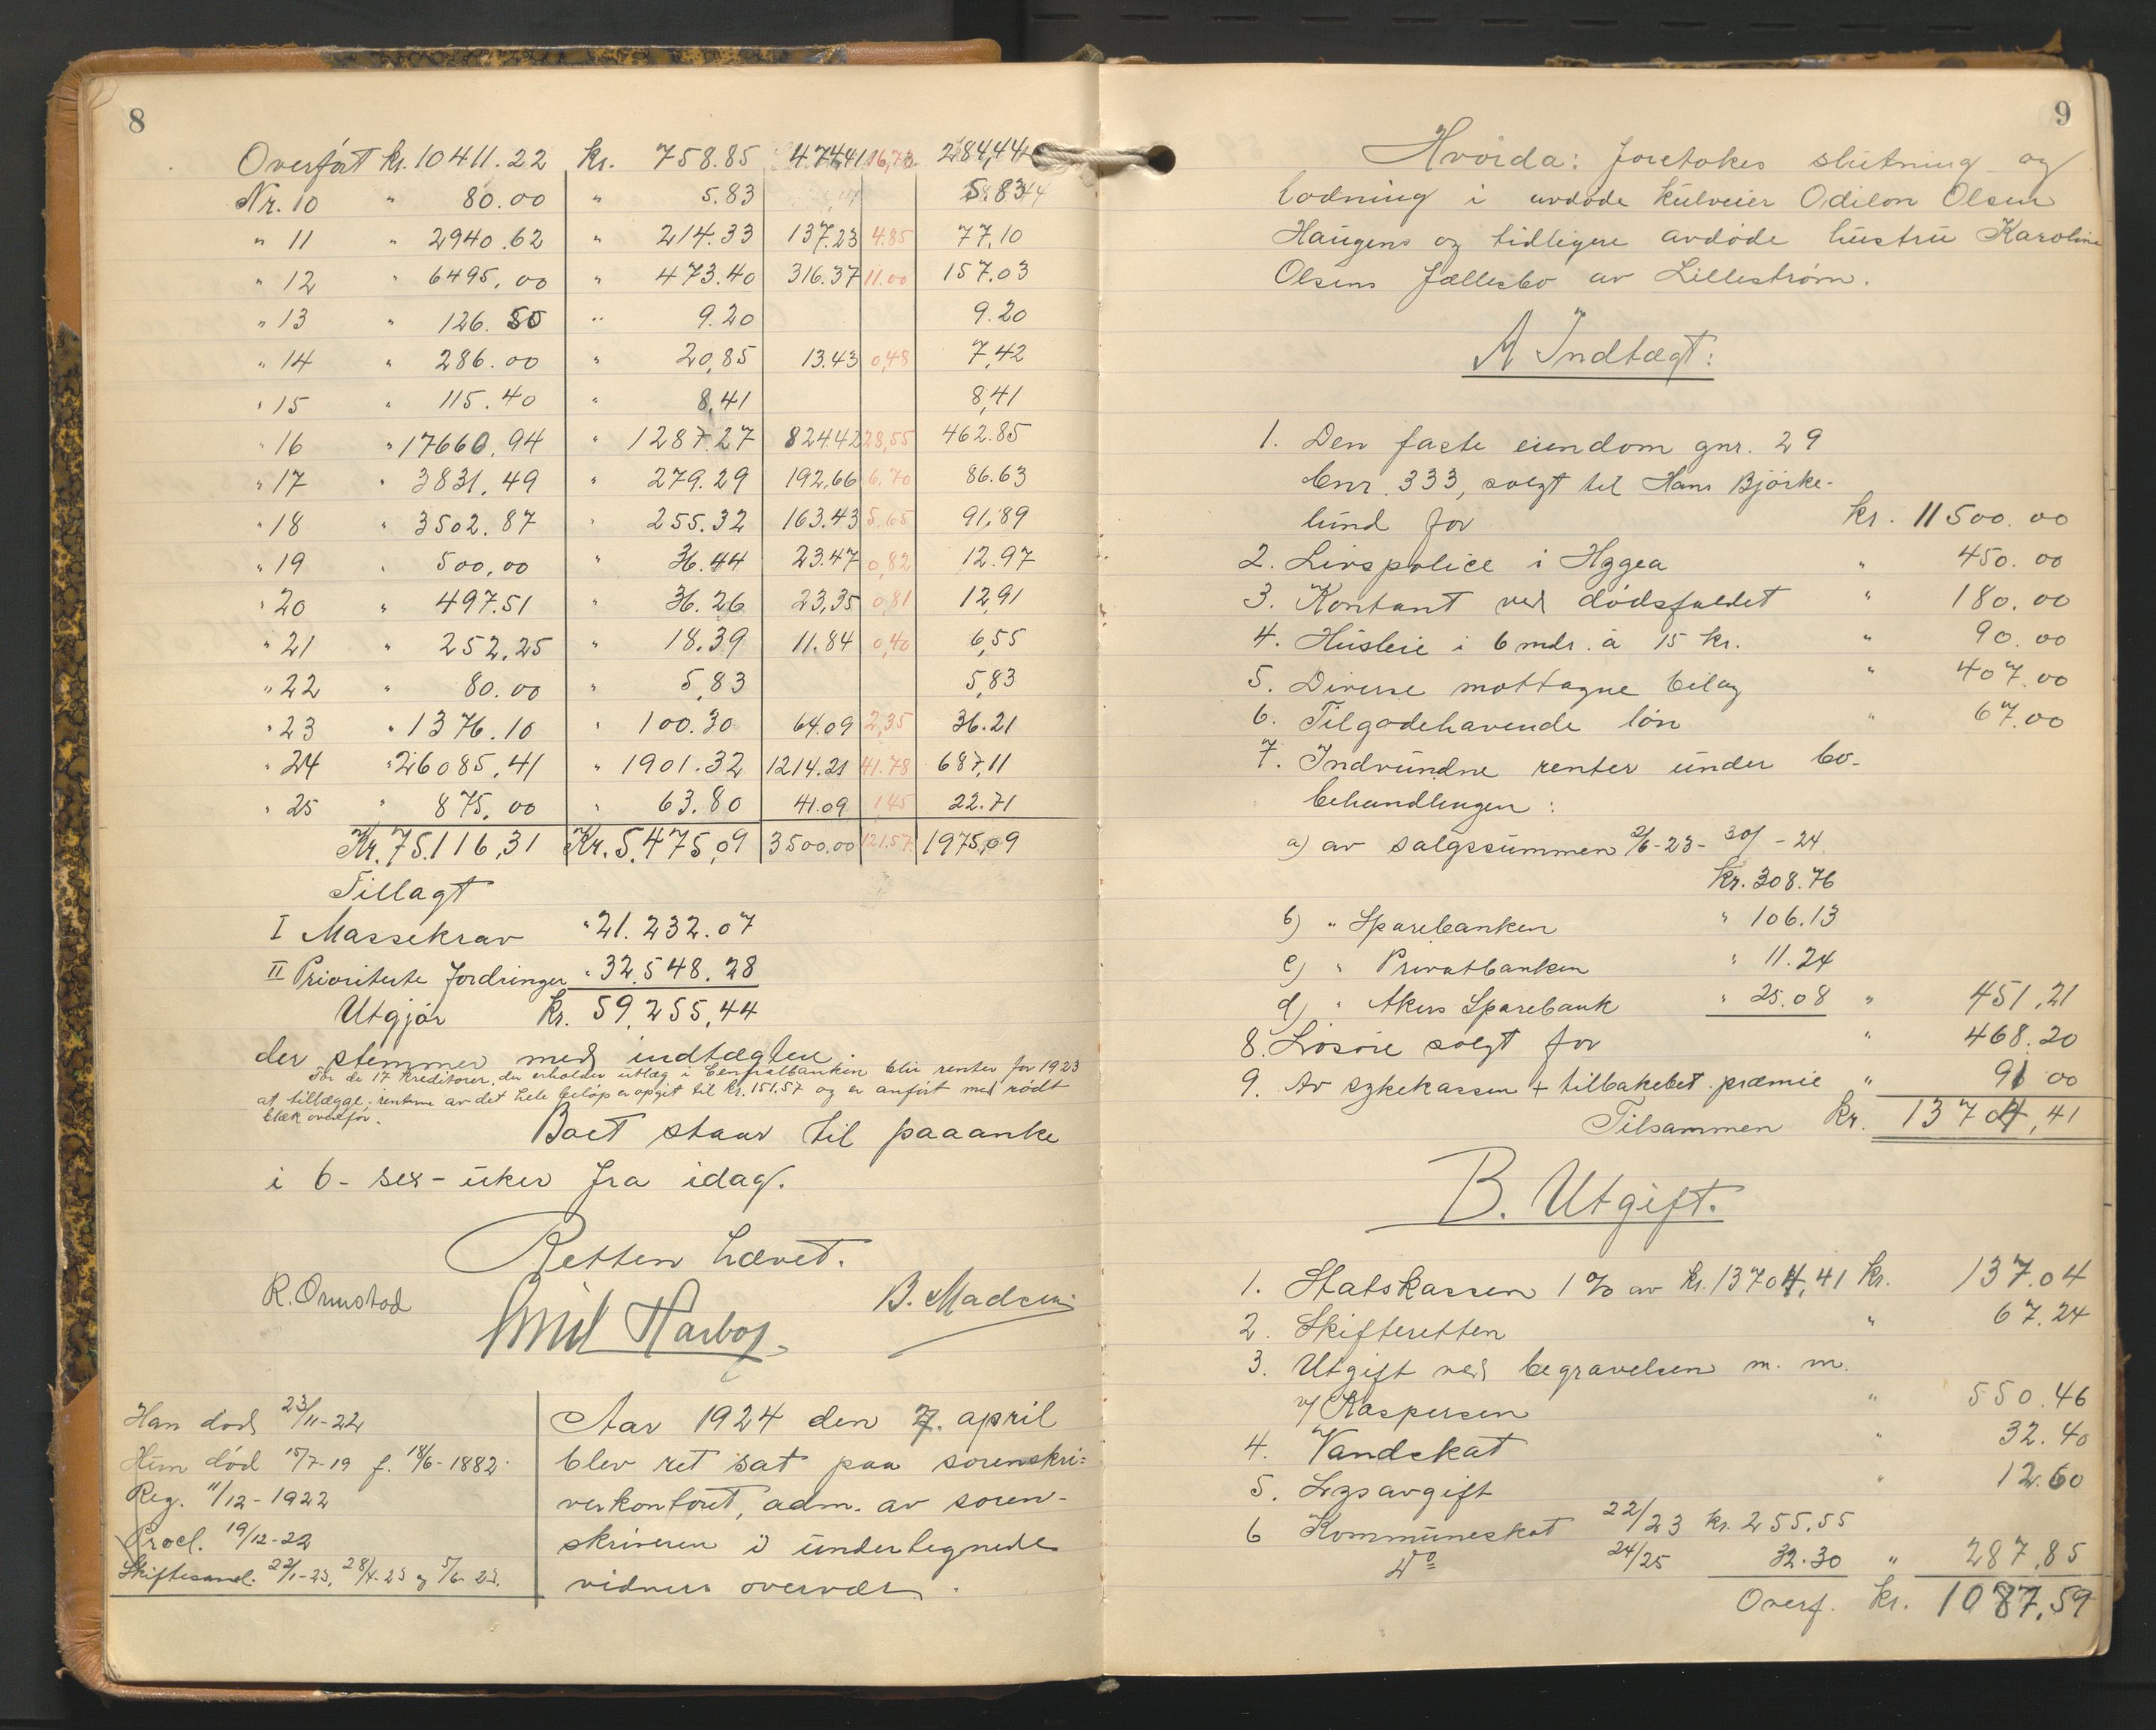 8
Overført kr. 10411.22 kr. 758.85 474.41 16,73 284,44
Nr. 10 " 80.00 " 5.83 5.83
" 11 " 2940.62 " 214.33 137.23 4.85 77,10
" 12 " 6495,00 " 473.40 316.37 11.00 157.03
" 13 " 126.50 " 9.20 9.20
" 14 " 286.00 " 20,85 13.43 0,48 7,42
" 15 " 115.40 " 8,41 8,41
" 16 " 17660,94 " 1287.27 824.42 28,55 462.85
" 17 " 3831,49 " 279.29 192,66 6.70 86.63
" 18 " 3502.87 " 255.32 163.43 5,65 91,89
" 19 " 500,00 " 36.44 23.47 0,82 12.97
" 20 " 497.51 " 36.26 23,35 0,81 12,91
" 21 " 252,25 " 18.39 11.84 0,40 6,55
" 22 " 80.00 " 5,83 5,83
" 23 " 1376.10 " 100.30 64.09 2,35 36.21
" 24 " 26085,41 " 1901.32 1214.21 41.78 687,11
" 25 " 875,00 " 63.80 41.09 1,45 22.71
Kr. 75.116,31 Kr. 5.475,09 3500,00 121.57 1975,09
Tillagt
I Massekrav " 21.232.07
II Prioriterte fordringer " 32.548.28
Utgjør kr. 59,255,44
der stemmer med indtægten.
For de 17 kreditorer, der erholder utlæg i Centralbanken blir renter for 1923
at tillægge, renterne av det hele beløp er opgit til kr. 151.57 og er anført med rødt
blæk ovenfor.
Boet staar til paaanke
i 6 - sex - uker fra idag.
Retten hævet.
R. Ormstad Emil Harboy. B. Madsen
Han død 23/11-22
Hun død 15/7-19 f. 18/6-1882.
Reg. 11/12-1922
Procl. 19/12-22
Skiftesaml. 22/1-23, 28/4-23 og 5/6-23.
Aar 1924 den 7. april
blev ret sat paa sorenskri-
verkontoret, adm. av soren-
skriveren i undertegnede
vidners overvær.
9
Hvorda: foretokes slutning og
lodning i avdøde kulveier Odilon Olsen
Haugens og tidligere avdøde hustru Karoline
Olsens fællesbo av Lillestrøm.
A Indtægt:
1. Den faste eiendom gnr. 29
bnr. 333, solgt til Hans Bjørke-
lund for kr. 11500.00
2. Livspolice i Hygea " 450.00
3. Kontant ved dødsfaldet " 180.00
4. Husleie i 6 mdr. à 15 kr. " 90.00
5. Diverse mottagne bilag " 407.00
6. Tilgodehavende løn " 67.00
7. Indvundne renter under bo-
behandlingen:
a) av salgssummen 2/6-23 - 30/ -24
kr. 308.76
b) " Sparebanken " 106.13
c) " Privatbanken " 11.24
d) " Akers Sparebank " 25.08 " 451,21
8. Løsøre solgt for " 468.20
9. Av sykekassen + tilbakebet. præmie " 91 00
Tilsammen kr. 13704,41
B. Utgift.
1. Statskassen 1 % av kr. 13704,41 kr. 137.04
2. Skifteretten " 67.24
3. Utgift ved begravelsen m. m.
v/ Kaspersen " 550.46
4. Vandskat " 32.40
5. Lysavgift " 12.60
6 Kommuneskat 22/23 kr. 255,55
Do 24/25 32.30 " 287,85
Overf. kr. 1087,59